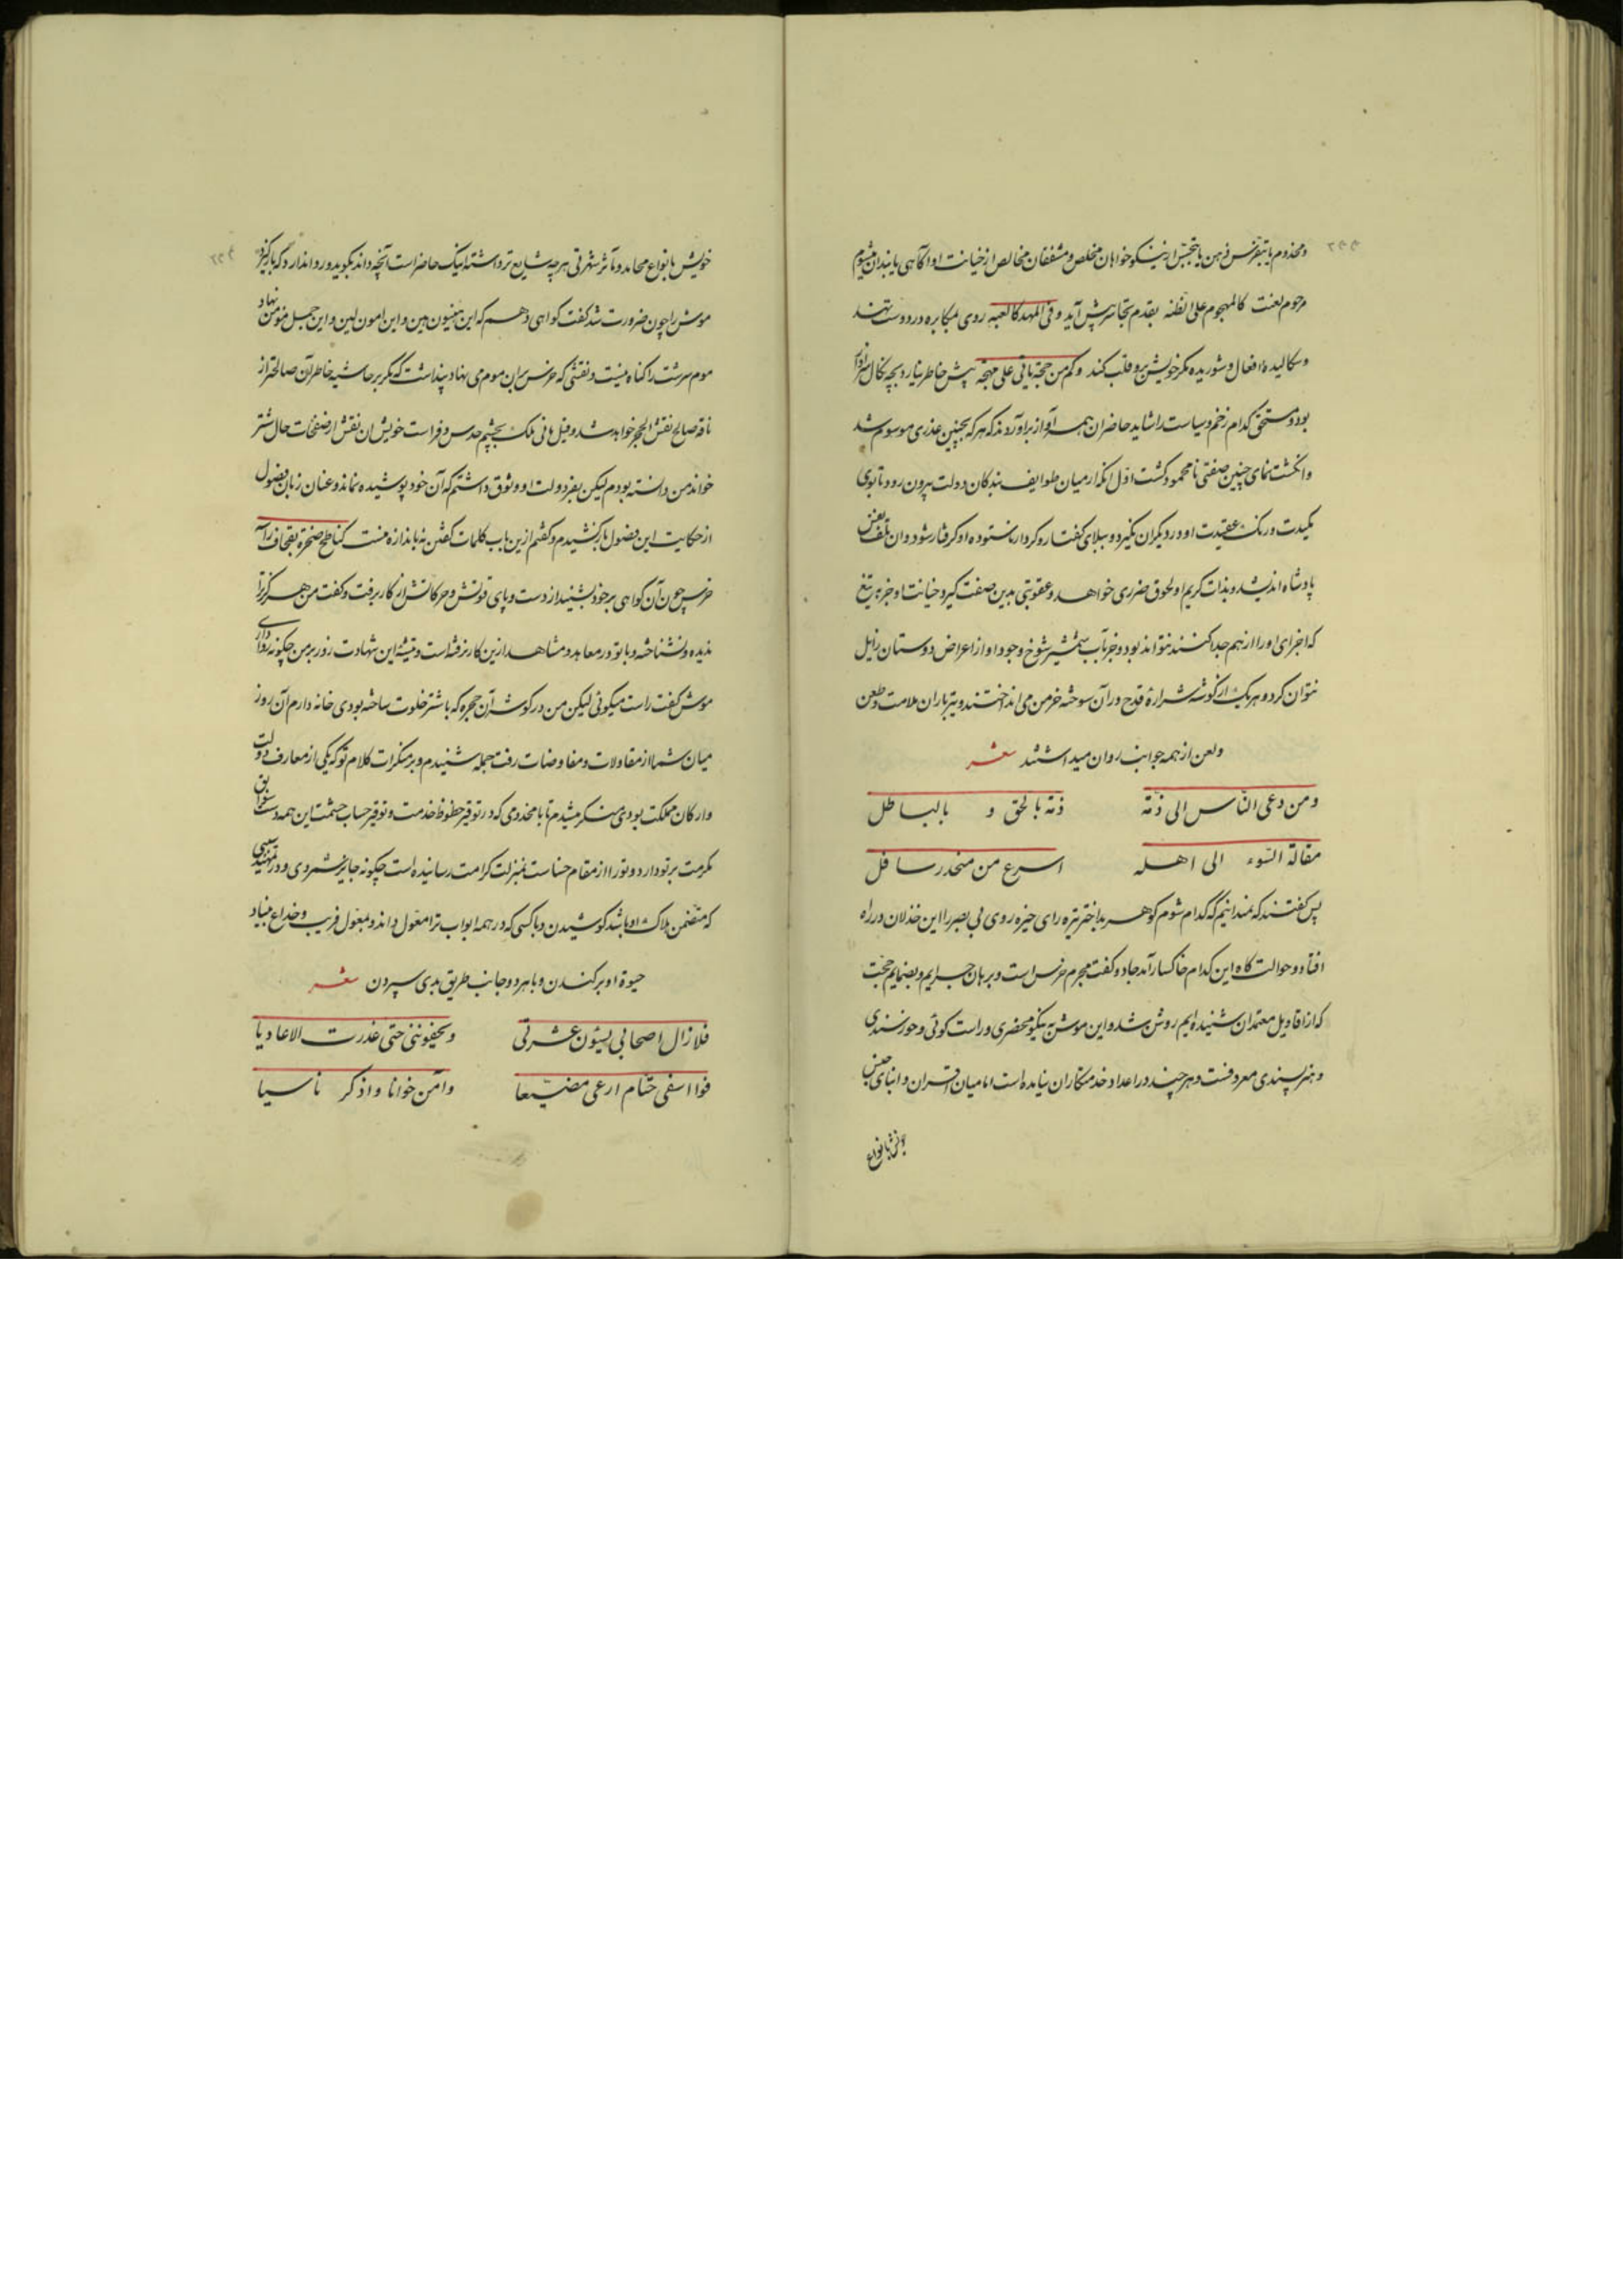 و مخدوم یا بتفرس ذهن یا بتجسس از نیکو خواهان مخلص و مشفقان مخالص از خیانت او آگاهی یابد
مرحوم لعنت کالهجوم علی نظنه بقدم تجاسر پیش آید و فی المهد کالعبه روی بمکابره در دوست نهند
و سکالیده افعال و شوریده مکر خویش برو قلب کند و کم من حجة یاتی علی مهجة پیش خاطر نیارد بچه نکال
بود و مستحق کدام زخم و سیاست را شاید حاضران همه آواز برآوردند که هر که بچنین عذری موسوم شد
و انگشت نمای چنین صفتی نامحمود کشت اول انکه از میان طوایف بندکان دولت بیرون رود تا بوی
مکیدت و رنک عقیدت او در دیکران نکیرد و ببلای کفتار و کردار ناستوده او کرفتار شود و ان بتلف نفس
پادشاه اندیشد و بذات کریم او لحوق ضرری خواهد و عقوبتی بدین صفت کیرد خیانت او جز به تیغ
که اجزای او را از هم جدا کنند نتواند بود و جز بآب شمشیر شوخ وجود او از اعراض دوستان زایل
نتوان کرد و هر یک از کوشه شراره قدح در آن سوخته خرمن می انداختند و تیرباران ملامت و طعن
و لعن از همه جوانب روان میداشتند شعر
و من دعی الناس الی ذمة ذمة بالحق و بالباطل
مقالة السوء الی اهله اسرع من منحدر سافل
پس کفتند که نمیدانیم که کدام شوم کوهر بداختر تیره رای خیره روی بی بصر را این خذلان در راه
افتاد و حوالت کاه این کدام خاکسار آمد جاد و کفت مجرم خرس است و برهان جرایم و بضمایم حجت
که از اقاویل معتمدان شنیده ایم روشن شد و این موش به نیکو محضری و راست کوئی و خورسندی
و هنر پسندی معروفست و هر چند در اعداد خدمتکاران نیامده است اما میان اقران و ابنای جنس
خویش بانواع
خویش بانواع محامد و مآثر شهرتی هر چه شایع تر داشته اینک حاضر است آنچه داند بکوید و روا ندارد که باز کیرد
موش را چون ضرورت شد کفت کواهی دهم که این میمون هین و این امون لین و این جمل مؤمن نهاد
موم سرشت را کناه نیست و نقشی که خرس بران موم می نهاد پنداشت که مکر بر حاشیه خاطر آن صالحتر از
ناقه صالح نقش الحجر خواهد شد و قبل مانی ملک بچشم حدس و فراست خویش ان نقش از صفحات حال شتر
خواند من دانسته بودم لیکن بفر دولت او وثوق داشتم که آن خود پوشیده نماند و عنان زبان فضول
از حکایت این فضول بازکشیدم و کفتم ازین باب کلمات کفتن نه باندازه منست کناطح صخرة بقحاف رأسه
خرس چون آن کواهی بر خود بشنید از دست و پای قوتش و حرکاتش از کار برفت و کفت من هرکز ترا
ندیده و نشناخته و با تو در معاهد و مشاهد ازین کار نرفته است و نیشته این شهادت زور بر من چکونه روا داری
موش کفت راست میکوئی لیکن من در کوشه آن حجره که با شتر خلوت ساخته بودی خانه دارم آن روز
میان شما از مقاولات و مفاوضات رفت جمله شنیدم و بر منکرات کلام تو که یکی از معارف دولت
و ارکان مملکت بودی منکر میشدم تا با مخدومی که در توقیر حظوظ خدمت و توفیر حساب حشمت این همه سوابق
مکرمت بر تو دارد و تو را از مقام خساست بمنزلت کرامت رسانیده است چکونه جایز شمردی و در تمهید سببی
که متضمن هلاک او باشد کوشیدن و با کسی که در همه ابواب ترا معول داند و بمعول فریب و خداع بنیاد
حیوة او برکندن و با هر دو جانب طریق بدی سپردن شعر
فلا زال اصحابی یسیؤن عشرتی و یجفوننی حتی عذرت الاعادیا
فوا اسفی حتام ارعی مضیعا و آمن خوانا و اذکر ناسیا